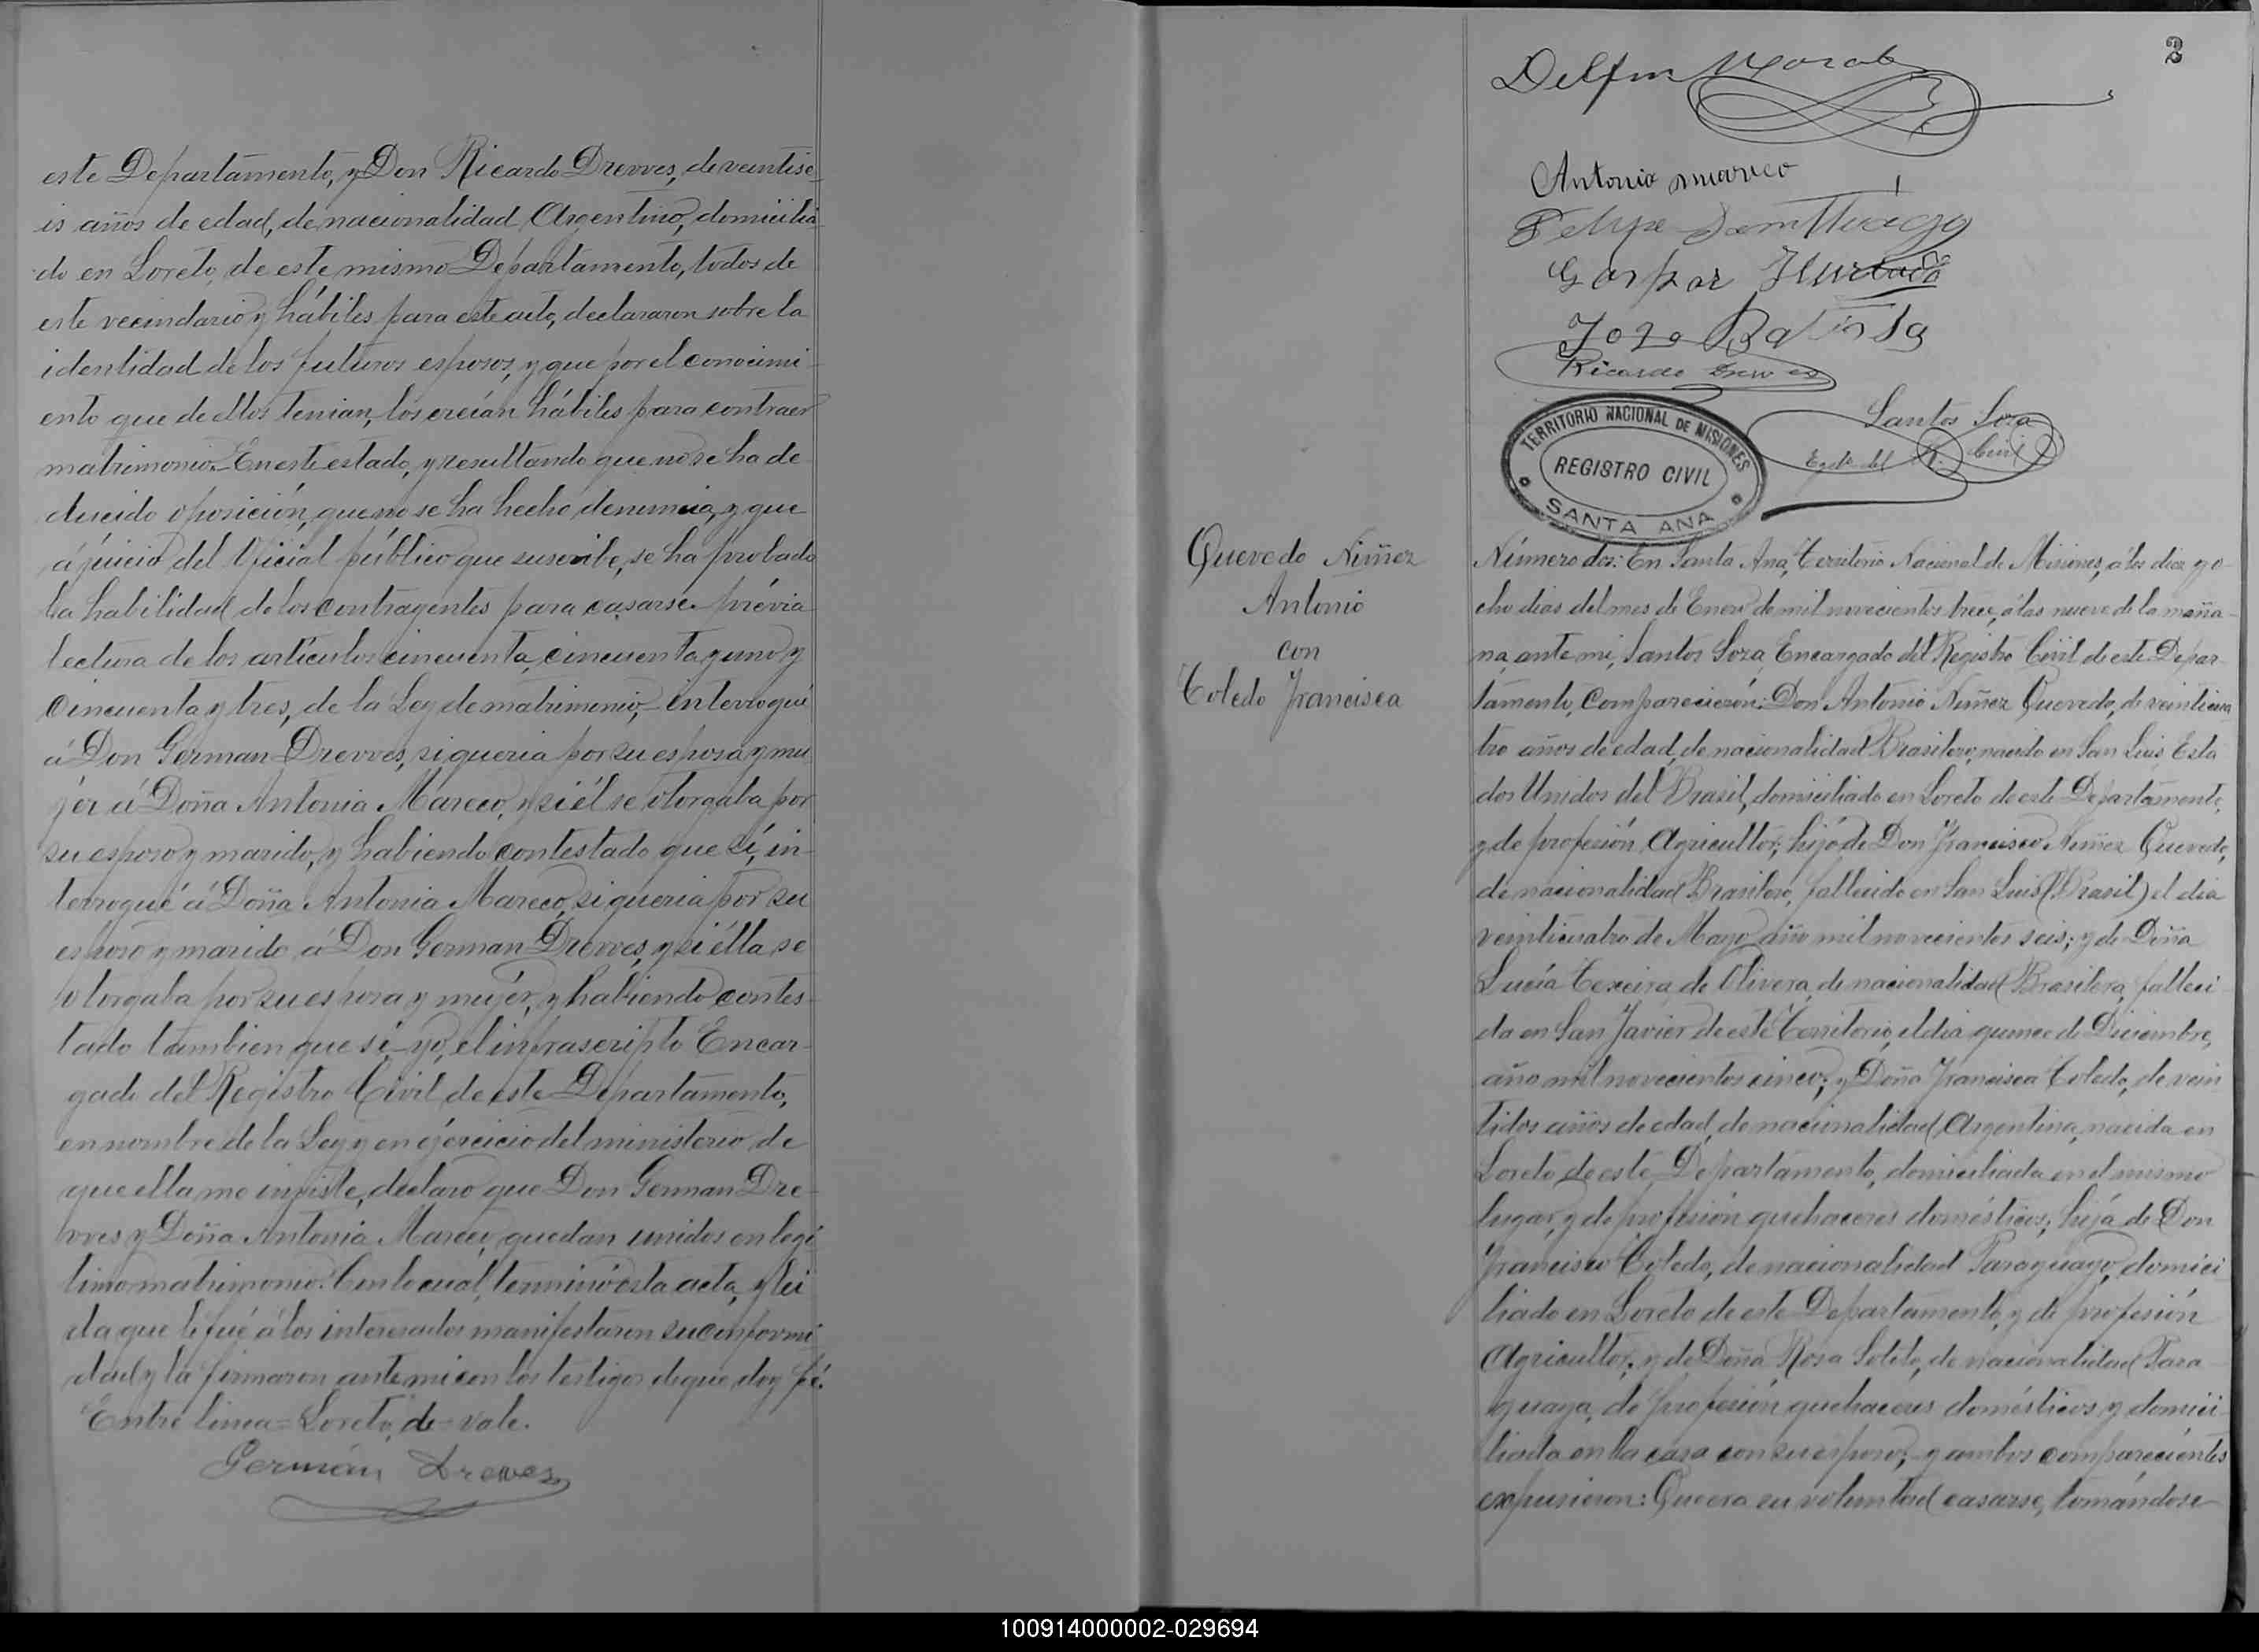 este Departamento, y Don Ricardo Drewes, de veintise-
is años de edad, de nacionalidad Argentino, domicilia-
do en Loreto, de este mismo Departamento, todos de
este vecindario y hábiles para este acto, declararon sobre la
identidad de los futuros esposos, y que por el conocimi-
ento que de ellos tenian, los creían hábiles para contraer
matrimonio.- En este estado, y resultando que no se ha de-
ducido oposición, que no se ha hecho denuncia, y que
á juicio del Oficial público que suscribe, se ha probado
la habilidad de los contrayentes para casarse prévia
lectura de los artículos cincuenta, cincuenta y uno y
cincuenta y tres, de la Ley de matrimonio,- interrogué
á Don German Drewes, si queria por su esposa y mu-
jér á Doña Antonia Mareco, y si él se otorgaba por
su esposo y marido, y habiendo contestado que sí, in-
terrogué á Doña Antonia Mareco, si queria por su
esposo y marido á Don German Drewes, y si élla se
otorgaba por su esposa y mujér, y habiendo contes-
tado tambien que sí- yo, el infrascripto Encar-
gado del Registro Civil de este Departamento,
en nombre de la Ley y en ejercicio del ministerio de
que ella me inviste, declaro que Don German Dre-
wes y Doña Antonia Mareco, quedan unidos en legí-
timo matrimonio. Con lo cual, terminó esta acta, y lei-
da que le fué á los interesados manifestaron su conformi-
dad y la firmaron ante mi con los testigos de que doy fé.
Entre linea = Loreto, de = vale.
Germán Drewes
2
Delfin Morales
Antonia mareco
Felipe
Gaspar Hurtado
João Batista
Ricardo Drewes
Santos Soza
Egdo del R. Civil
TERRITORIO NACIONAL DE MISIONES
REGISTRO CIVIL
SANTA ANA
Quevedo Nuñez
Antonio
con
Toledo Francisca
Número dos: En Santa Ana, Territorio Nacional de Misiones, á los diez y o-
cho dias del mes de Enero de mil novecientos trece, á las nueve de la maña-
na, ante mi, Santos Soza Encargado del Registro Civil de este Depar-
tamento, Comparecieron: Don Antonio Nuñez Quevedo, de veinticua-
tro años de edad, de nacionalidad Brasilero, nacido en San Luis, Esta-
dos Unidos del Brasil, domiciliado en Loreto de este Departamento,
y de profesión Agricultor, hijo de Don Francisco Nuñez Quevedo,
de nacionalidad Brasilero, fallecido en San Luis (Brasil) el dia
veinticuatro de Mayo año mil novecientos seis; y de Doña
Lucía Texeira de Olivera, de nacionalidad Brasilera, falleci-
da en San Javier de este Territorio, el dia quince de Diciembre,
año mil novecientos cinco; y Doña Francisca Toledo, de vein-
tidos años de edad, de nacionalidad Argentina, nacida en
Loreto de este Departamento, domiciliada en el mismo
lugar, y de profesión quehaceres domésticos; hija de Don
Francisco Toledo, de nacionalidad Paraguayo, domici-
liado en Loreto de este Departamento, y de profesión
Agricultor; y de Doña Rosa Sotelo, de nacionalidad Para-
guaya, de profesión quehaceres domésticos y domici-
liada en la casa con su esposo; y ambos comparecientes
expusieron: Que era su voluntad casarse, tomándose
100914000002-029694